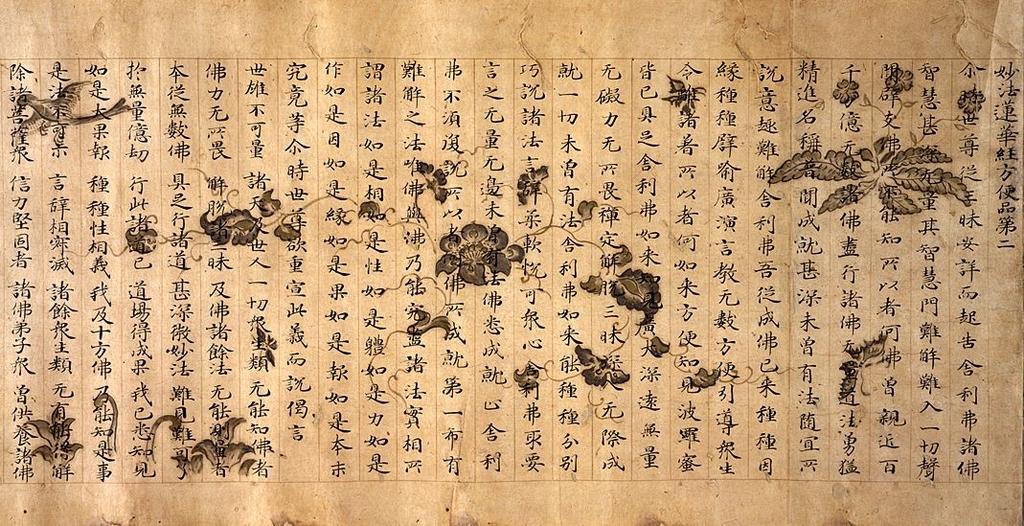 妙法蓮華經方便品第二
尒時世尊從三昧安詳而起告舍利弗諸佛
智慧甚深无量其智慧門難解難入一切聲
聞辟支佛所不能知所以者何佛曾親近百
千万億无數諸佛盡行諸佛无量道法勇猛
精進名稱普聞成就甚深未曾有法隨宜所
說意趣難解舍利弗吾從成佛已来種種因
緣種種譬喻廣演言教无數方便引導衆生
令離諸著所以者何如来方便知見波羅蜜
皆已具足舍利弗如来知見廣大深遠無量
无礙力无所畏禪定解脫三昧深入无際成
就一切未曾有法舍利弗如来能種種分別
巧說諸法言辭柔軟悅可衆心舍利弗取要
言之无量无邊未曾有法佛悉成就止舍利
弗不須復說所以者何佛所成就第一希有
難解之法唯佛與佛乃能究盡諸法實相所
謂諸法如是相如是性如是體如是力如是
作如是因如是緣如是果如是報如是本末
究竟等尒時世尊欲重宣此義而說偈言
世雄不可量 諸天及世人 一切衆生類 无能知佛者
佛力无所畏 解脫諸三昧 及佛諸餘法 无能測量者
本從無數佛 具足行諸道 甚深微妙法 難見難可了
於無量億劫 行此諸道已 道場得成果 我已悉知見
如是大果報 種種性相義 我及十方佛 乃能知是事
是法不可示 言辭相寂滅 諸餘衆生類 无有能得解
除諸菩薩衆 信力堅固者 諸佛弟子衆 曾供養諸佛